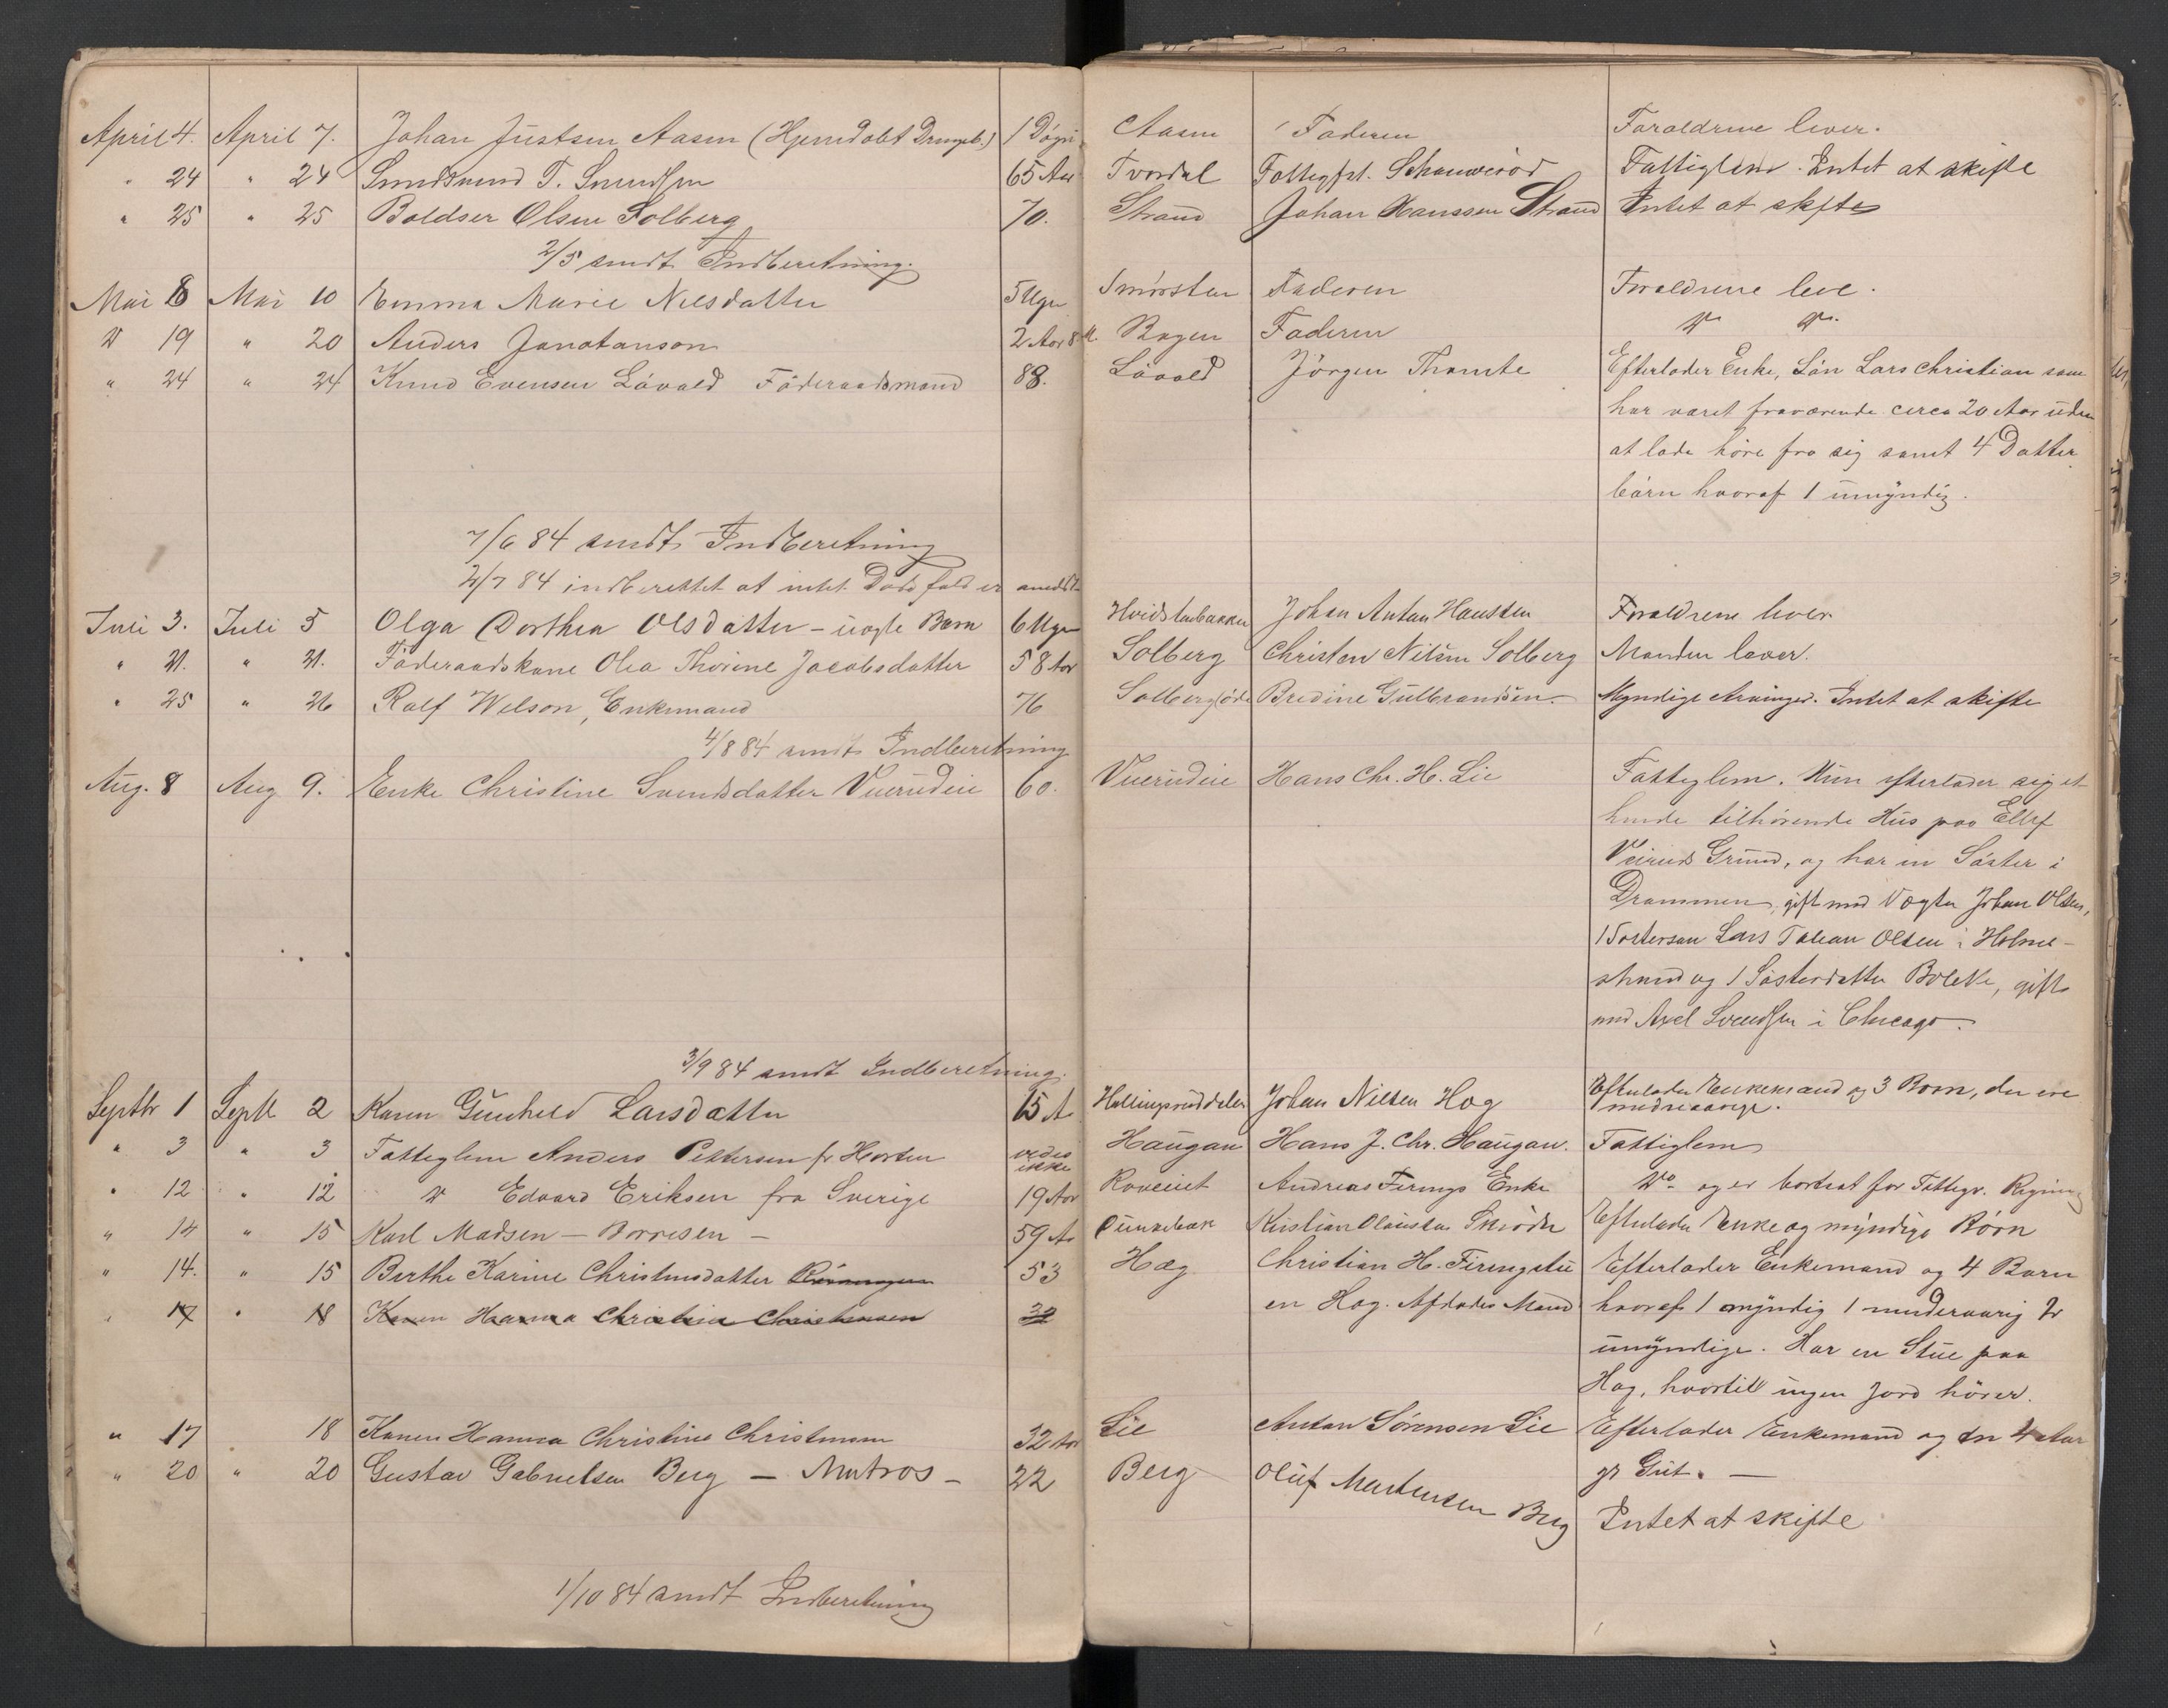 April 4. April 7. Johan Justsen Aasen (Hjemdøbt Drengeb.) 1 Døgn Aasen Faderen Forældrene lever.
" 24 " 24 T. 65 Aar Tvordal Fattigfst. Fattiglem. Intet at skifte
" 25 " 25 Boldser Olsen Solberg 70. Strand Johan Hanssen Strand Intet at skifte
2/5 sendt Indberetning.
Mai 8 Mai 10 Emma Marie Nilsdatter 5 Uger Smørsten Faderen Forældrene leve.
D 19 " 20 Anders Jonatanson 2 Aar 8 M. Bogen Faderen Do Do.
" 24 " 24 Knud Evensen Løvold Føderaadsmand 88. Løvold Jörgen Thomte Efterlader Enke, Søn Lars Christian som
har været fraværende circa 20 Aar uden
at lade høre fra sig samt 4 Datter
børn hvoraf 1 umyndig.
7/6 84 sendt Indberetning
2/7 84 indberettet at intet Dødsfald er anmeldt
Juli 3. Juli 5 Olga Dorthea Olsdatter - uægte Barn 6 Uger Hvidstenbakken Johan Anton Hansten Forældrene lever
" 21. " 21. Føderaadskone Olea Thorine Jacobsdatter 58 Aar Solberg Christen Nilsen Solberg Manden lever.
" 25 " 26 Rolf Welson, Enkemand 76 Bredine Gulbrandsen. Myndige Arvinger. Intet at skifte
4/8 84 sendt Indberetning
Aug. 8 Aug 9. Enke Christine Svendsdatter Vuerudeie 60. Vuerudeie Hans Chr. H. Lie Fattiglem. Hun efterlader sig et
hende tilhørende Hus paa Ellef
Veiruds Grund, og har en Søster i
Drammen, gift med Vægter Johan Olsen,
1 Søstersøn Lars Olsen i Holme-
strand og 1 Søsterdatter Bolette, gift
med Axel Svendsen i Chicago.
3/9 84 sendt Indberetning.
Septbr 1 Septb 2 Karen Gunhild Larsdatter A Johan Nilsen Hog Efterlader Enkemand og 3 Børn, der ere
mindreaarige.
" 3 " 3 Fattiglem Anders Pettersen fr Horten vides ikke Haugan Hans J. Chr. Haugan. Fattiglem
" 12 " 12 D Edvard Eriksen fra Sverige 19 Aar Andreas Firings Enke Do og er bortsat for Fattigv. Regning
" 14 " 15 Karl Madsen - Borresen - 59 A Efterlader Enke og myndige Børn
" 14. " 15 Berthe Karine Christensdatter 53 Hæg Christian H. Firingstu Efterlader Enkemand og 4 Børn
" 17 " 18 Karen Hanna Christine Christensen 32 en Hog. Afdødes Mand hvoraf 1 myndig 1 minderaarig 2
umyndige. Har en Stue paa
Hog, hvortil ingen Jord hører.
" 17 18 Karen Hanna Christine Christensen 32 Aar Lie Anton Sørensen Lie Efterlader Enkemand og en 4 Aar
" 20 " 20 Gustav Gabrielsen Berg - Matros - 22 Berg Oluf Mortensen Berg gl Gut. -
Intet at skifte
1/10 84 sendt Indberetning